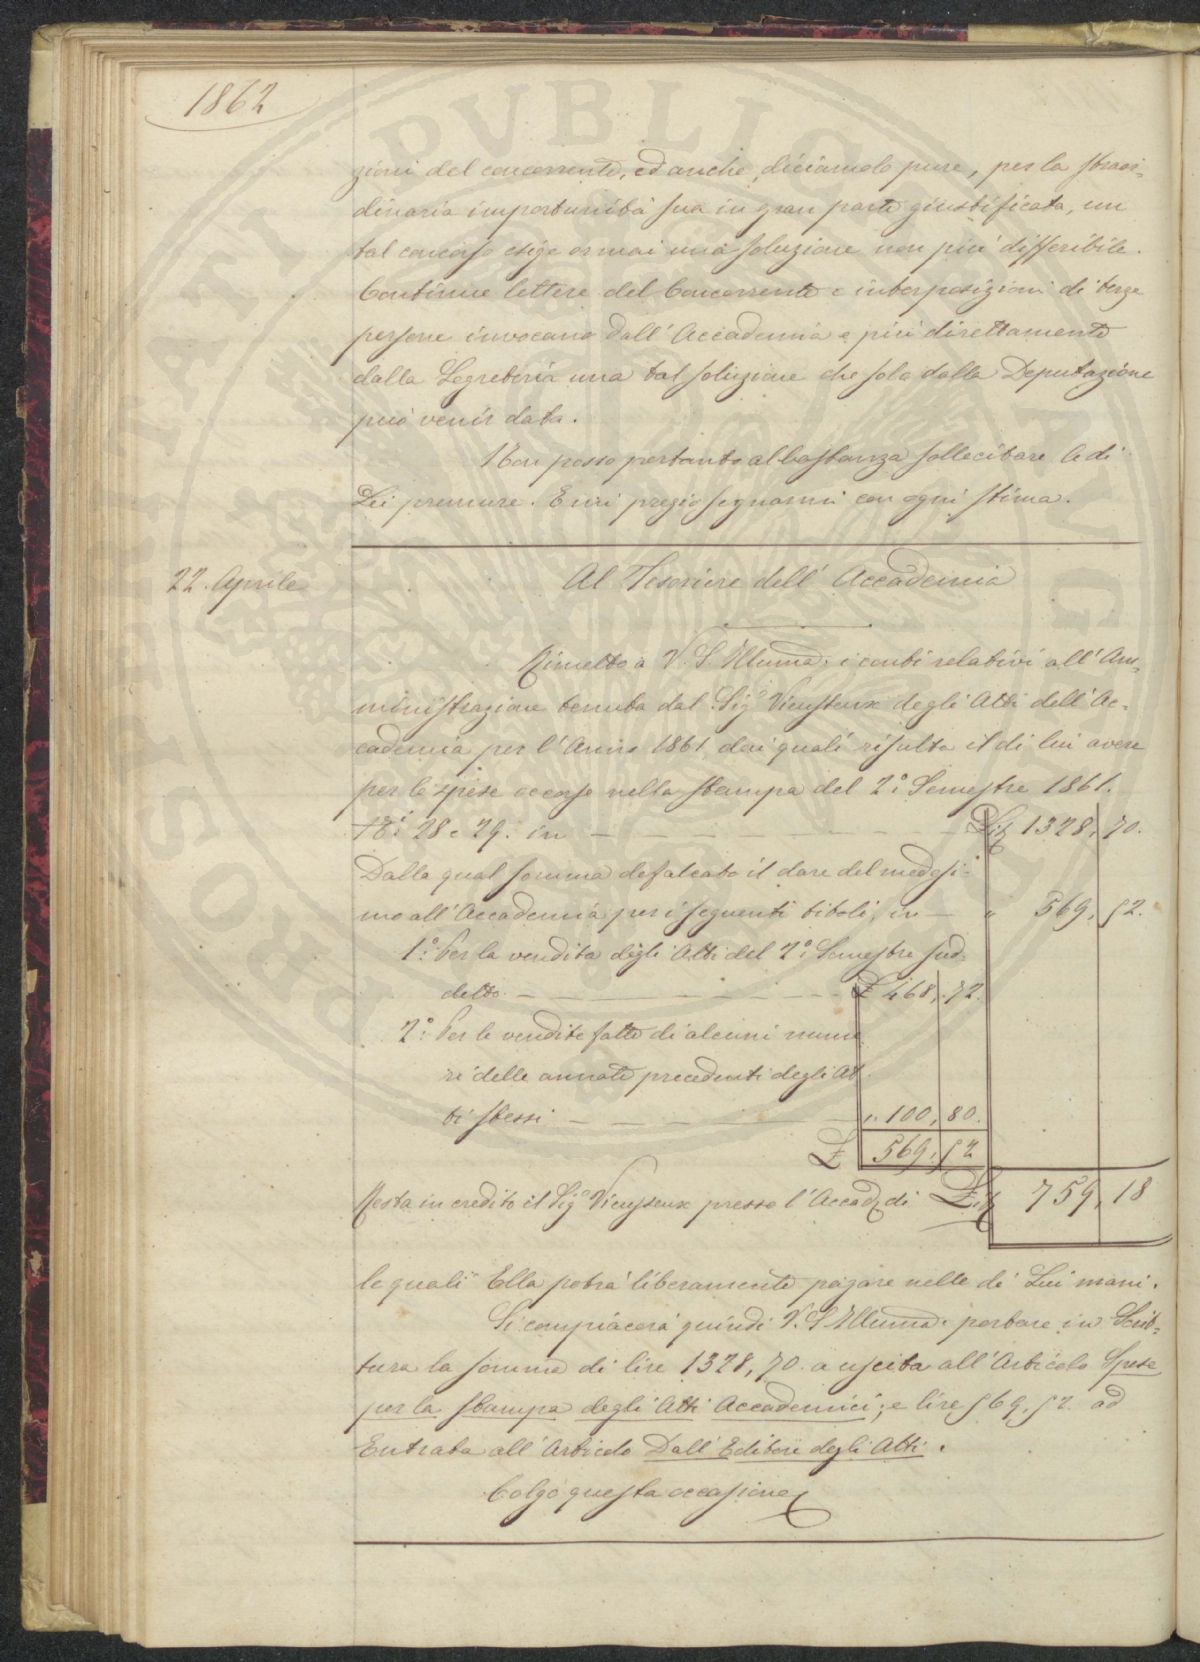 1862
zioni del concorrente, ed anche, diciamolo pure, per la straor-
dinaria importunità sua in gran parte giustificata, un
tal concorso esige ormai una soluzione non più differibile.
Continue lettere del Concorrente e interposizioni di terze
persone invocano dall'Accademia e più direttamente
dalla Segreteria una tal soluzione che solo dalla Deputazione
può venir data.
Non posso pertanto abbastanza sollecitare le di
Lei premure. E mi pregio segnarmi con ogni stima.
22. Aprile
Al Tesoriere dell'Accademia
Rimetto a V. S. Illuma. i conti relativi all'Am-
ministrazione tenuta dal Sigr. Vieusseux degli Atti dell'Ac-
cademia per l'Anno 1861, dai quali risulta il di lui avere
per le spese occorse nella stampa del 2º. Semestre 1861.
Ni. 28 e 29. in — Lit 1328, 70.
Dalla qual somma defalcato il dare del medesi-
mo all'Accademia per i seguenti titoli, in — " 569, 52.
1º: Per la vendita degli Atti del 2º. Semestre sud-
detto — £ 468, 72.
2º: Per le vendite fatte di alcuni nume
ri delle annate precedenti degli At
ti stessi — ". 100, 80.
£ 569, 52
Resta in credito il Sigr. Vieusseux presso l'Accad. di Lit 759, 18
le quali Ella potrà liberamente pagare nelle di Lui mani.
Si compiacerà quindi V. S. Illuma. portare in Scrit-
tura la somma di lire 1328, 70. a uscita all'Articolo Spese
per la stampa degli Atti Accademici; e lire 569, 52. ad
Entrata all'Articolo Dall'Editore degli Atti.
Colgo questa occasione
PROSPERITATI PUBLICAE AUGENDAE